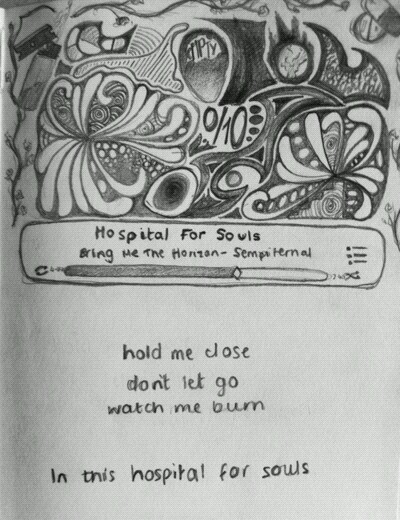 EMPTY
Hospital For Souls
Bring Me The Horizon- Sempiternal
hold me close
don't let go
watch me burn
In this hospital for souls